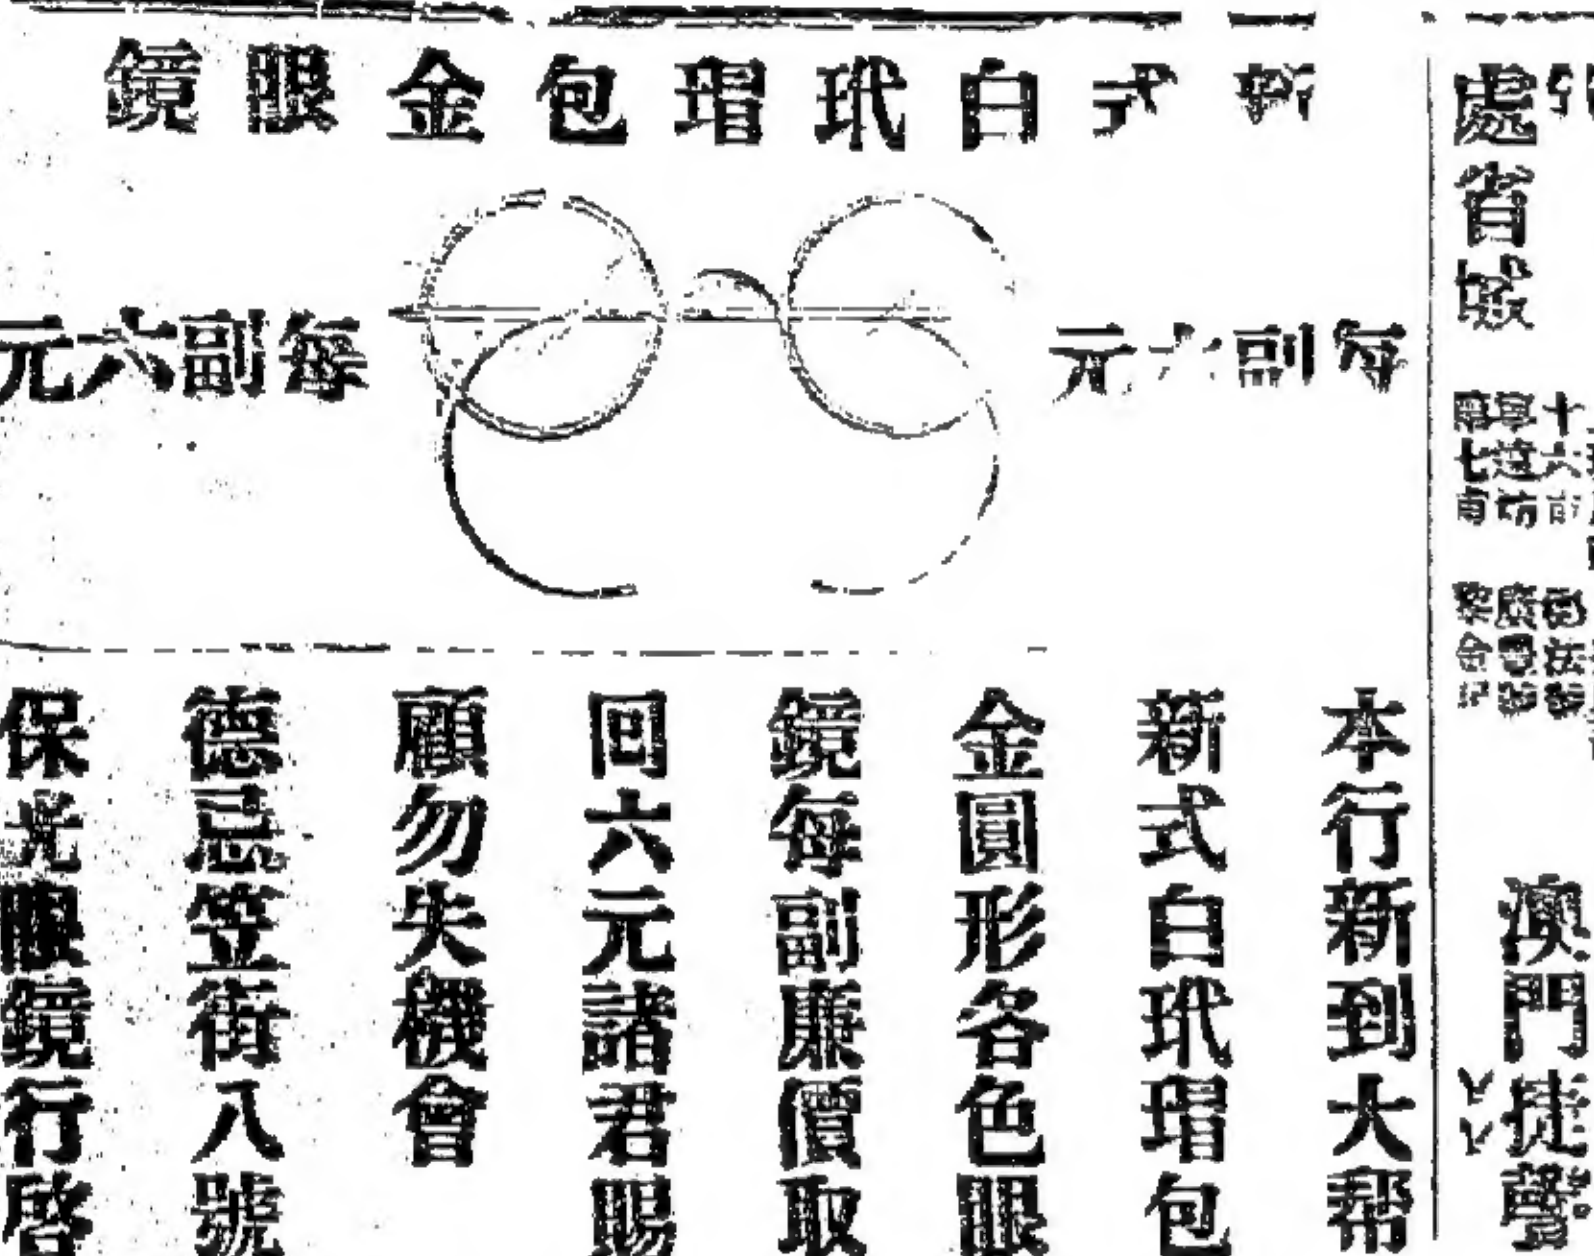 新式白玳瑁包金眼鏡
每副六元
每副六元
本行新到大帮
新式白玳瑁包
金圓形各色眼
鏡每副廉價取
回六元諸君賜
顧勿失機會
德忌笠街八號
保光眼鏡行啓
處省
澳門